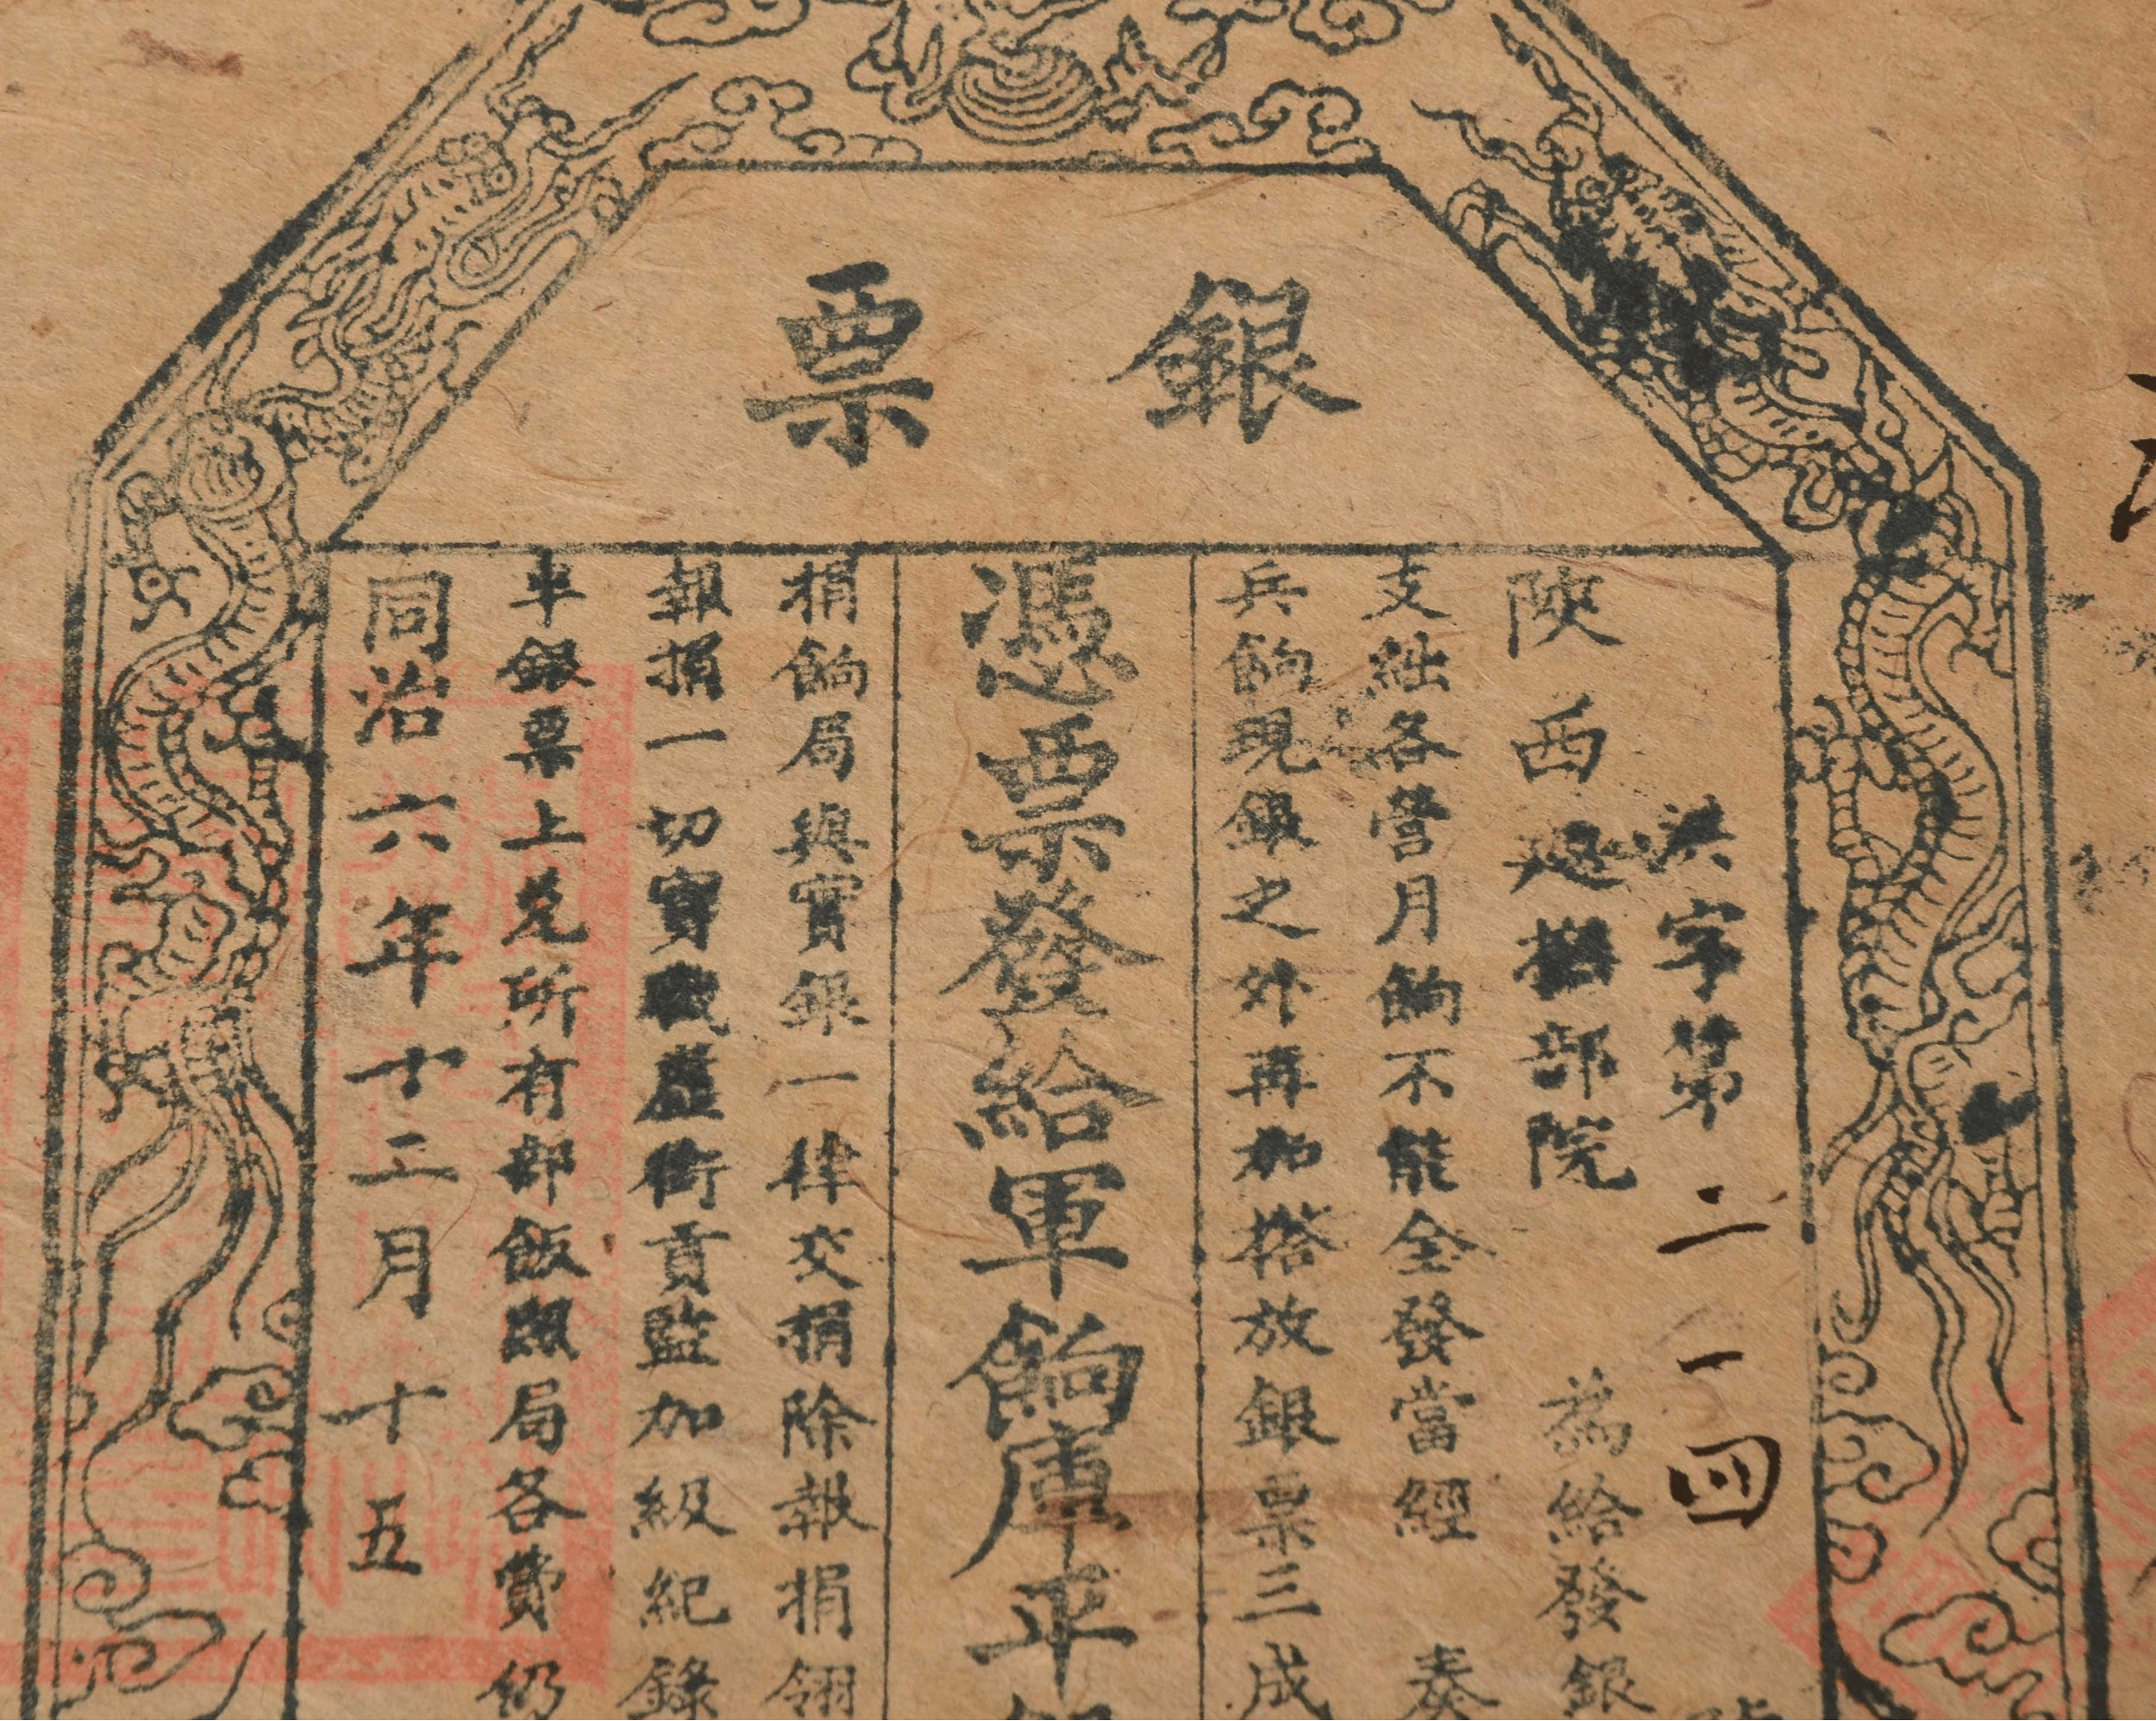 銀票
洪字第二一四
陝西巡撫部院 為給發銀
支絀各營月餉不能全發當經 奏
兵餉現銀之外再加搭放銀票三成
憑票發給軍餉庫平
捐餉局與實銀一律交捐除報捐翎
報捐一切實職虛銜貢監加級紀錄
車銀票上兌所有部飯照局各費仍
同治六年十二月十五